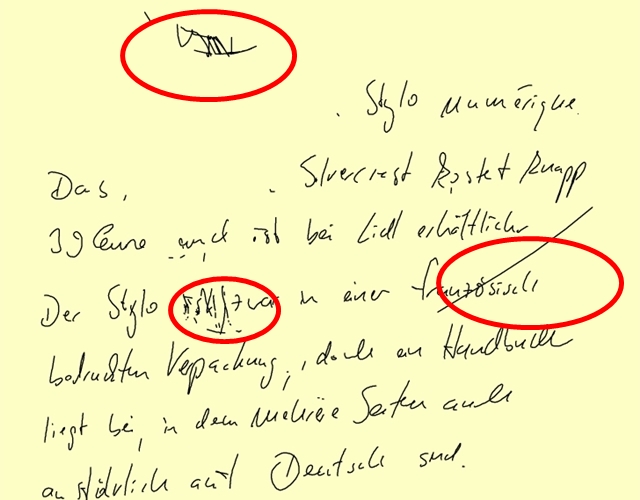 Stylo numérique
Das, Silvercrest kostet knapp
39 Euro und ist bei Lidl erhältlich
Der Stylo zwar in einer französisch
bedruckten Verpackung, doch ein Handbuch
liegt bei, in dem mehrere Seiten auch
ausführlich auf Deutsch sind.